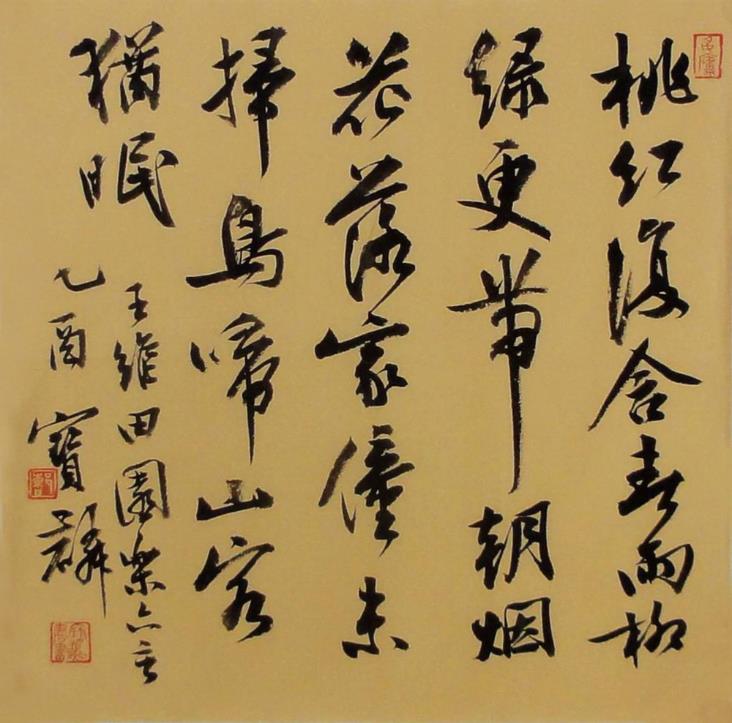 桃红復含春雨柳
绿更帶朝烟
花落家僮未
掃鳥啼山客
猶眠
王维田園樂六言
乙酉 寶麟